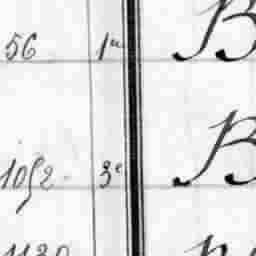 56 1re B
1052 3e B
1130 B